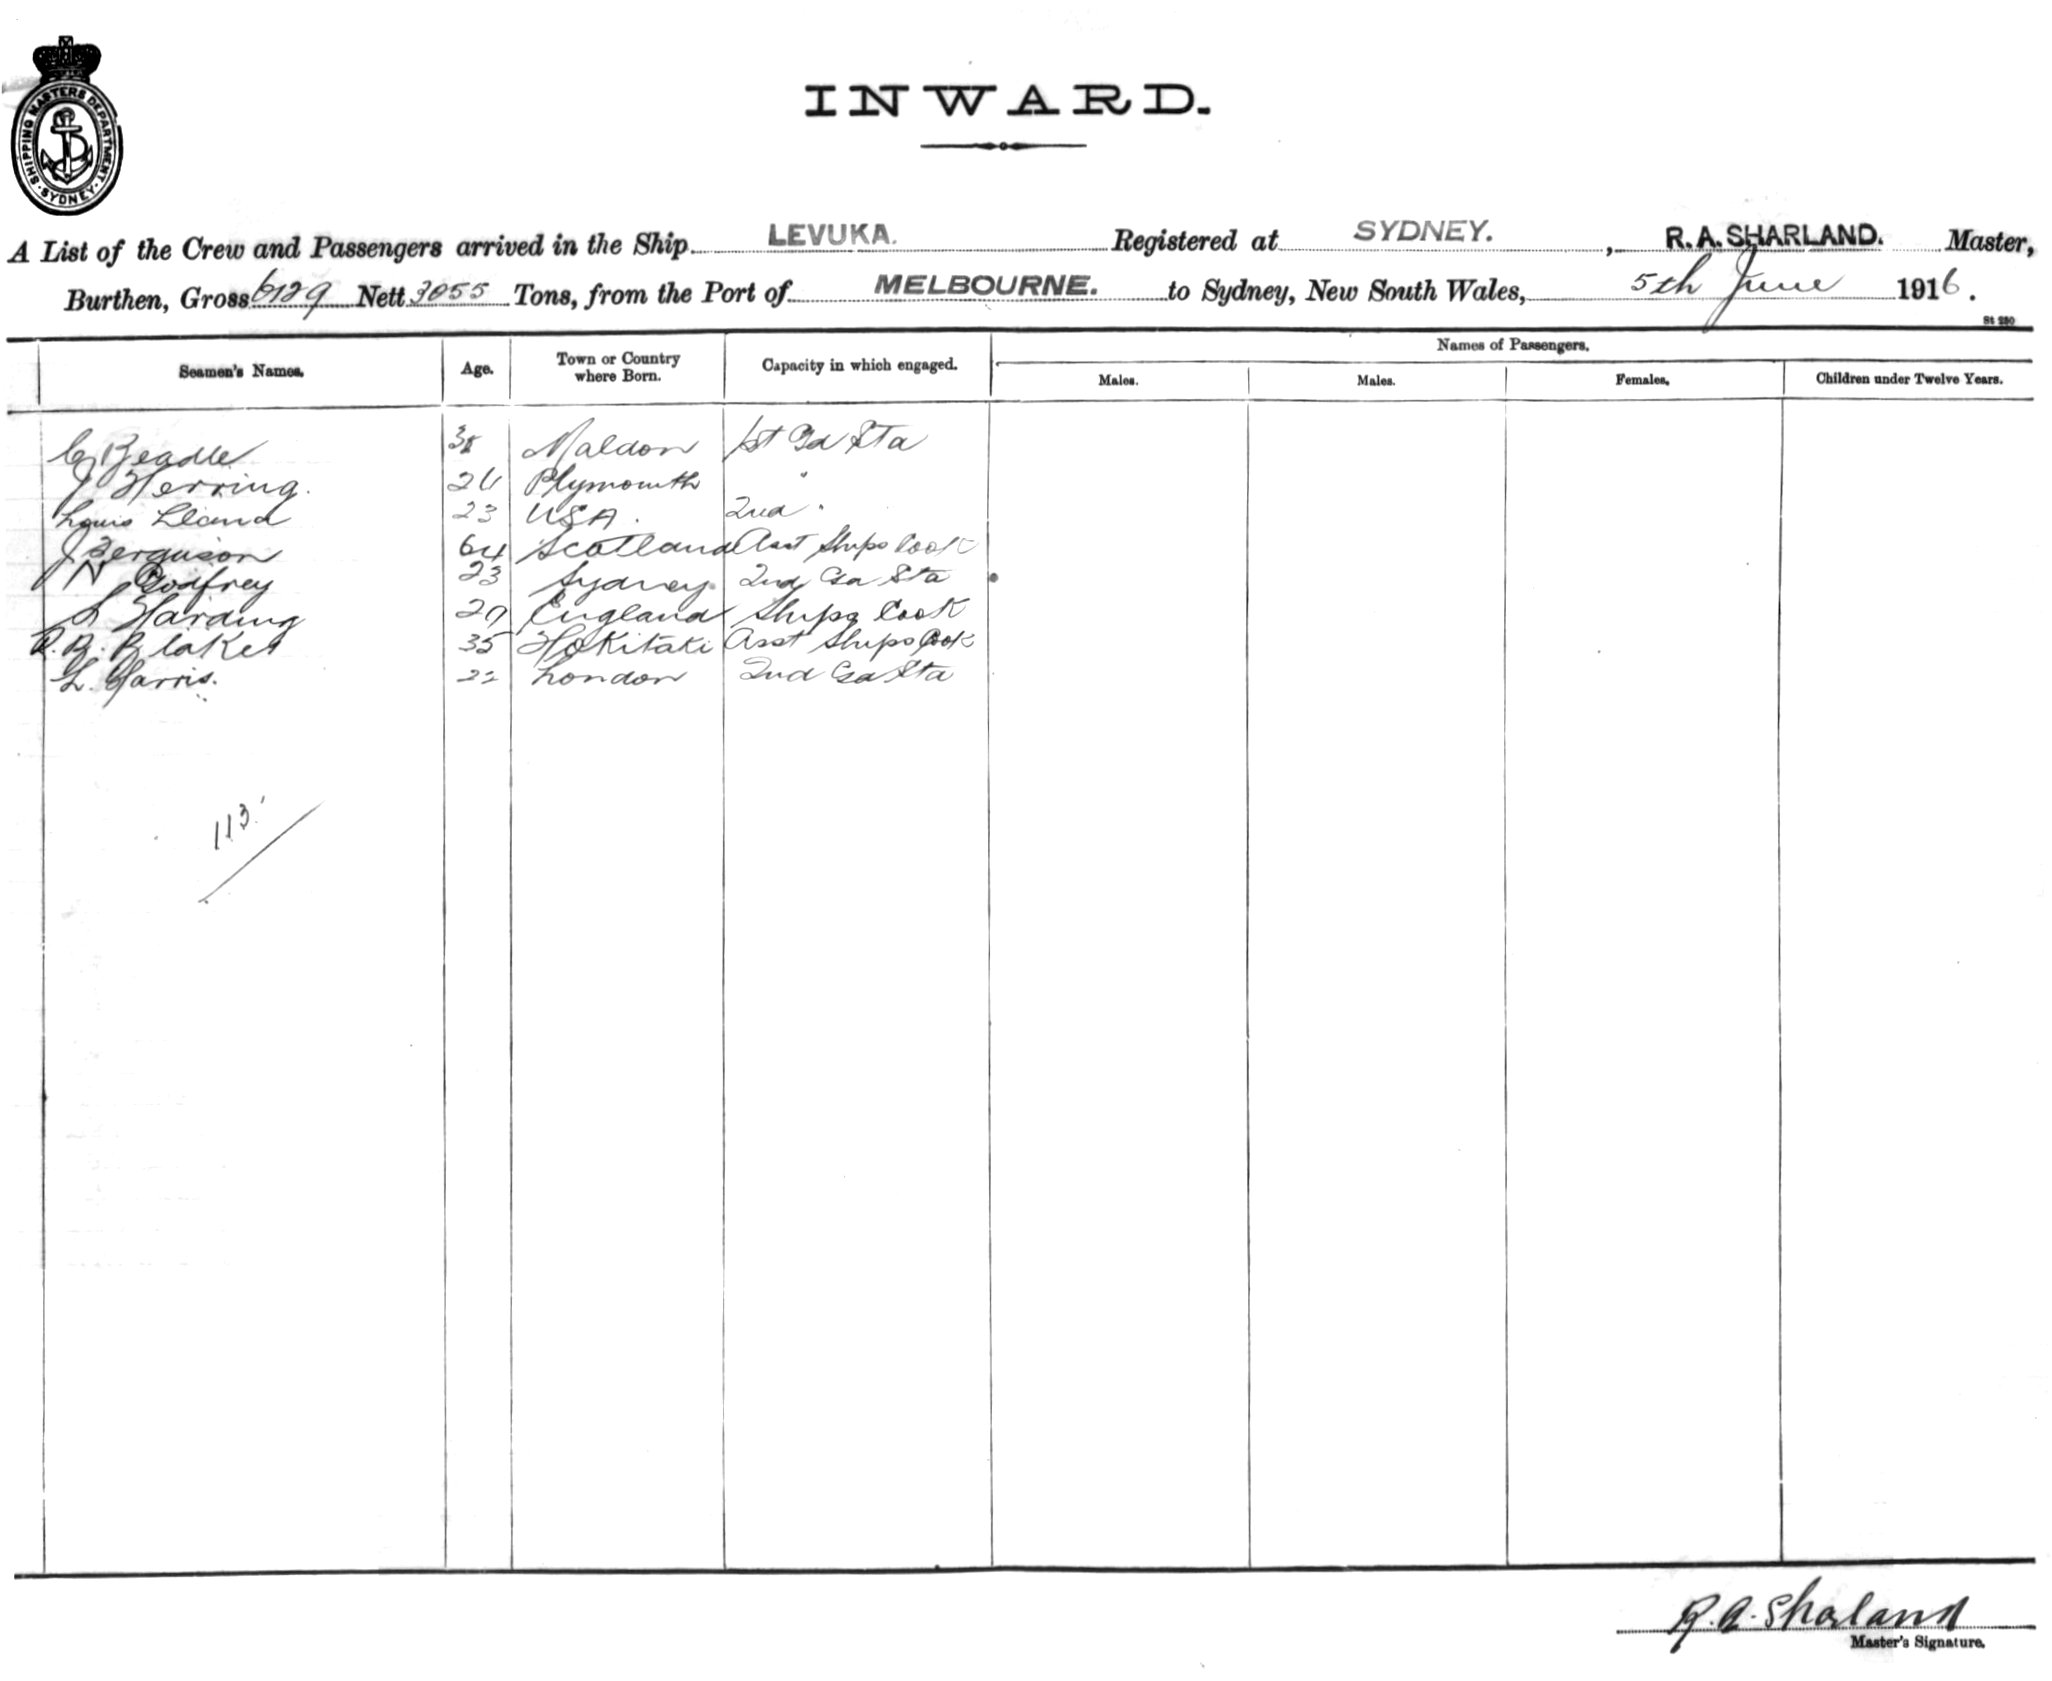 SHIPPING MASTERS DEPARTMENT · SYDNEY ·
INWARD.
A List of the Crew and Passengers arrived in the Ship LEVUKA. Registered at SYDNEY. , R. A. SHARLAND. Master,
Burthen, Gross 6129 Nett 3055 Tons, from the Port of MELBOURNE. to Sydney, New South Wales, 5th June 1916.
St 250
Seamen's Names. Age. Town or Country where Born. Capacity in which engaged. Names of Passengers.
Males. Males. Females. Children under Twelve Years.
C Beadle 38 Maldon 1st Gd Sta
J Herring. Plymouth "
Louis 23 USA. 2nd "
J Ferguson 64 Scotland Asst Ships Cook
N Godfrey 23 Sydney 2nd Gd Sta
L Harding 29 England Ships Cook
R. B. Blake 35 Hokitaki Asst Ships Cook
L. Harris. 22 London 2nd Gd Sta
113
R. A. Sharland
Master's Signature.